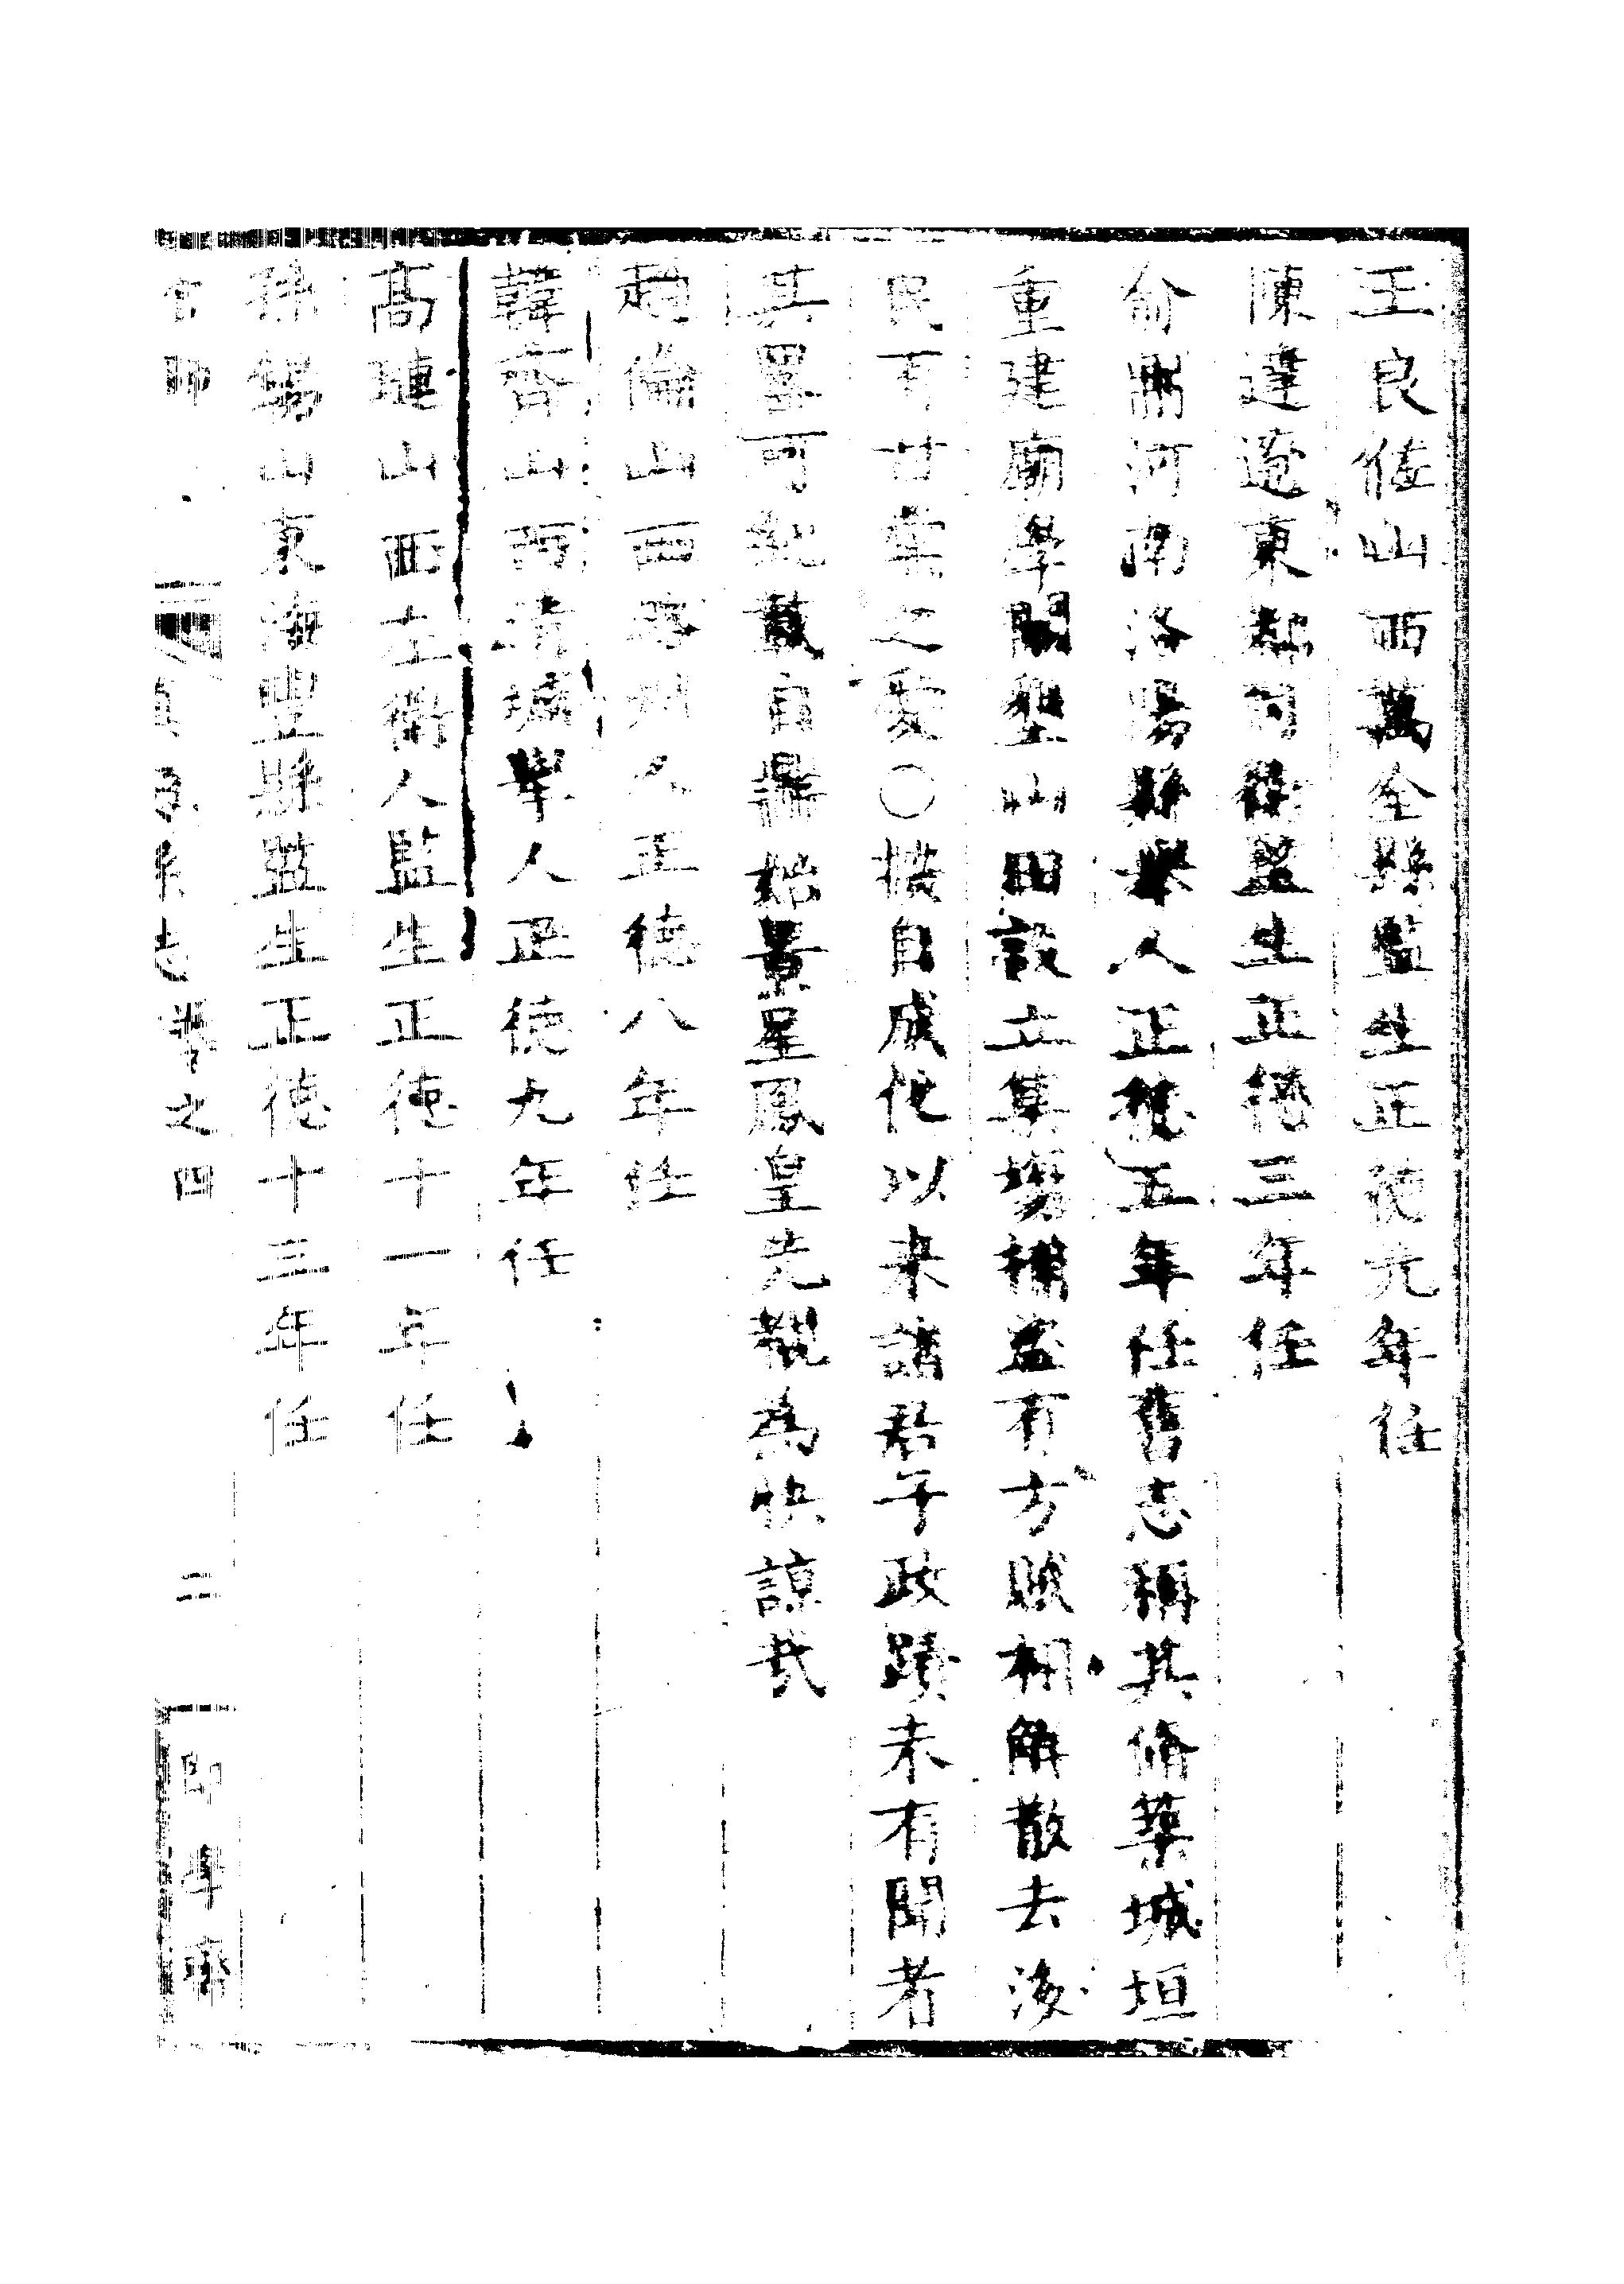 王良佐山西萬全縣監生正德元年任
陳達遼東都司衛監生正德三年任
俞鼐河南洛陽縣舉人正德五年任舊志稱其脩築城垣
重建廟學闢聖山田設立集塲補益有方賦相解散去後
民有甘棠之愛○按自成化以來諸君子政蹟未有聞者
其畧可紀載自鼐始景星鳳皇先覩為快諒哉
趙倫山西 州人正德八年任
韓齊山西清源舉人正德九年任
高璉山西左衛人監生正德十一年任
孫錫山東海豐縣監生正德十三年任
官師 縣志卷之四 二